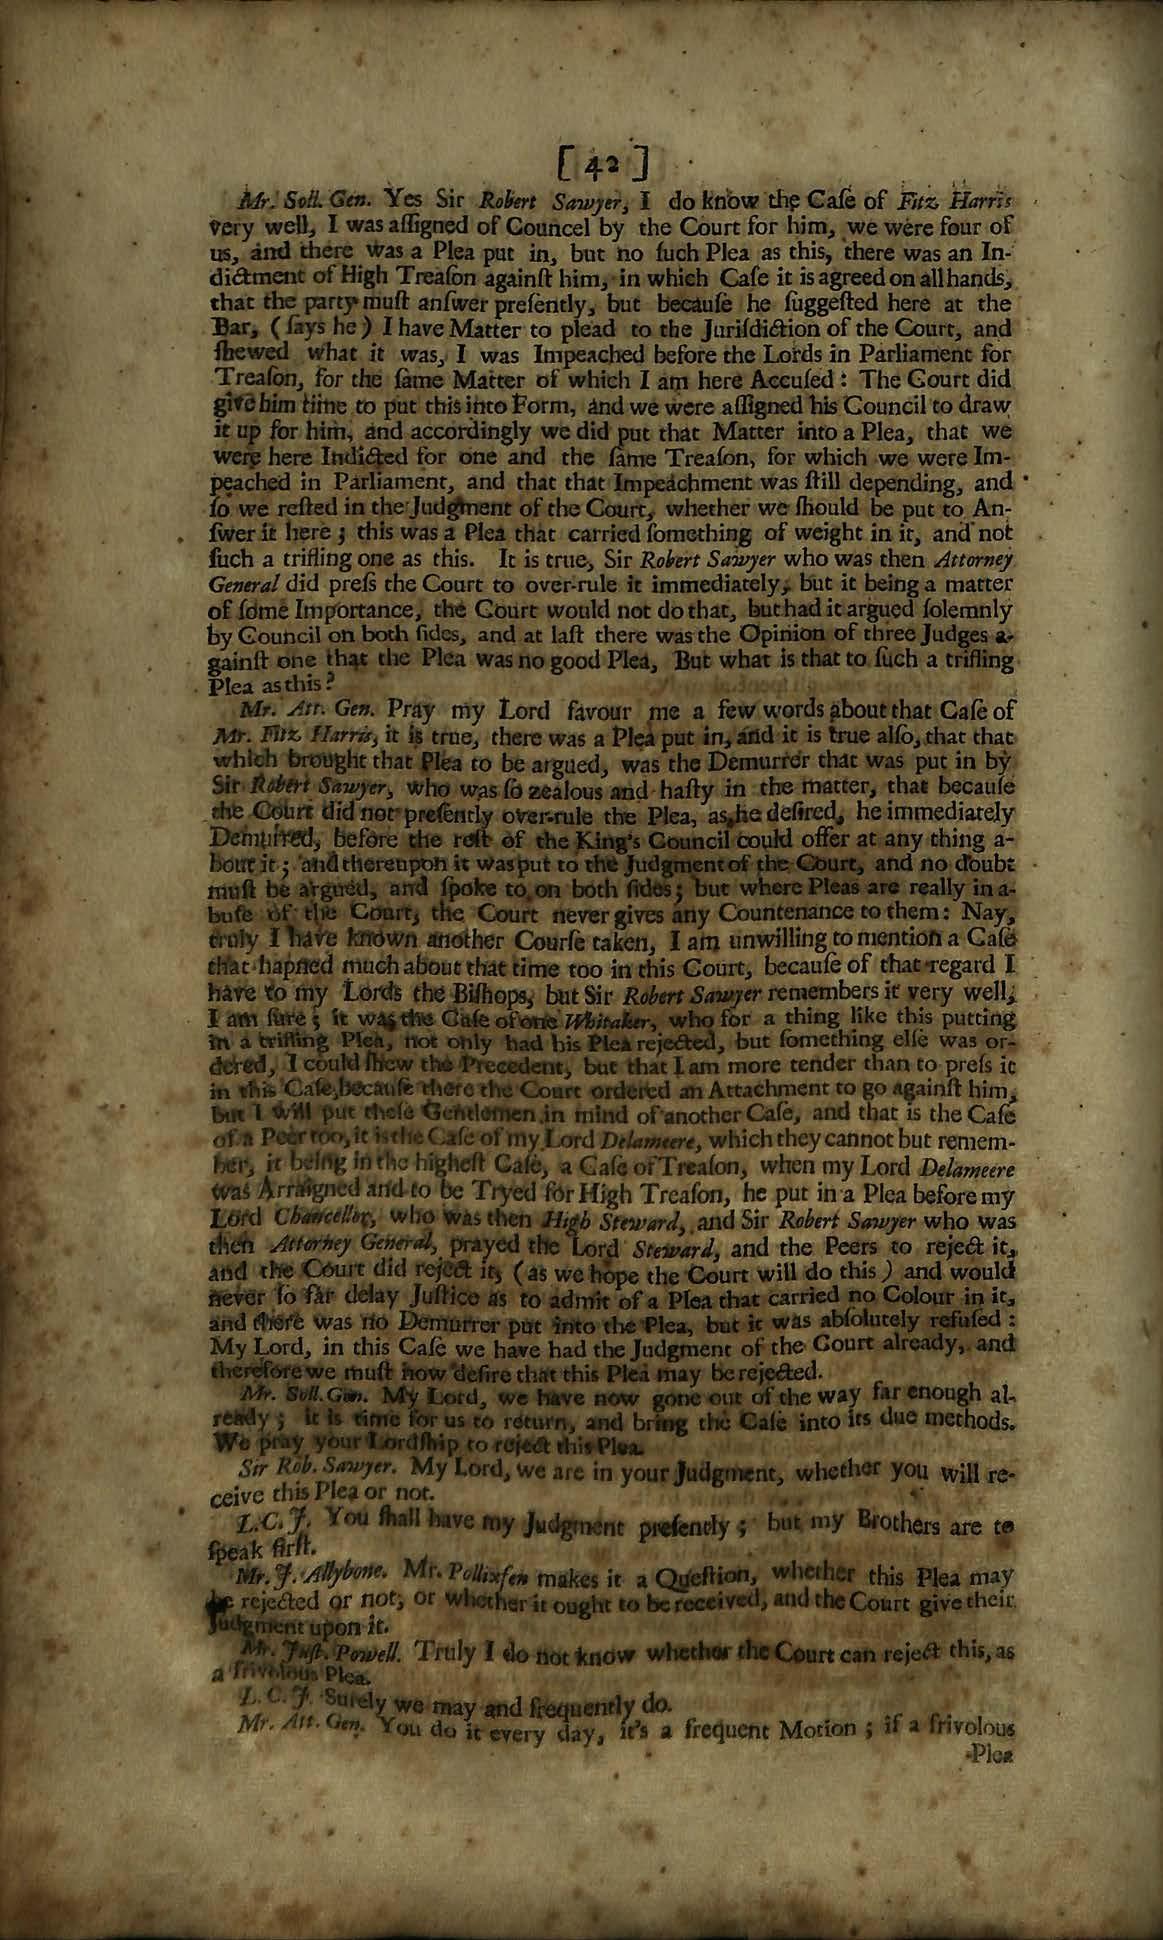 [ 42 ]
Mr. Soll. Gen. Yes Sir Robert Sawyer, I do know the Caſe of Fitz Harris
very well, I was aſſigned of Councel by the Court for him, we were four of
us, and there was a Plea put in, but no ſuch Plea as this, there was an In-
dictment of High Treaſon againſt him, in which Caſe it is agreed on all hands,
that the party muſt anſwer preſently, but becauſe he ſuggeſted here at the
Bar, (ſays he) I have Matter to plead to the Juriſdiction of the Court, and
ſhewed what it was, I was Impeached before the Lords in Parliament for
Treaſon, for the ſame Matter of which I am here Accuſed: The Court did
give him time to put this into Form, and we were aſſigned his Council to draw
it up for him, and accordingly we did put that Matter into a Plea, that we
were here Indicted for one and the ſame Treaſon, for which we were Im-
peached in Parliament, and that that Impeachment was ſtill depending, and
ſo we reſted in the Judgment of the Court, whether we ſhould be put to An-
ſwer it here; this was a Plea that carried ſomething of weight in it, and not
ſuch a trifling one as this. It is true, Sir Robert Sawyer who was then Attorney
General did preſs the Court to over-rule it immediately, but it being a matter
of ſome Importance, the Court would not do that, but had it argued ſolemnly
by Council on both ſides, and at laſt there was the Opinion of three Judges a-
gainſt one that the Plea was no good Plea, But what is that to ſuch a trifling
Plea as this?
Mr. Att. Gen. Pray my Lord favour me a few words about that Caſe of
Mr. Fitz Harris, it is true, there was a Plea put in, and it is true alſo, that that
which brought that Plea to be argued, was the Demurrer that was put in by
Sir Robert Sawyer, who was ſo zealous and haſty in the matter, that becauſe
the Court did not preſently over-rule the Plea, as he deſired, he immediately
Demurred, before the reſt of the King's Council could offer at any thing a-
bout it; and thereupon it was put to the Judgment of the Court, and no doubt
muſt be argued, and ſpoke to on both ſides; but where Pleas are really in a-
buſe of the Court, the Court never gives any Countenance to them: Nay,
truly I have known another Courſe taken, I am unwilling to mention a Caſe
that hapned much about that time too in this Court, becauſe of that regard I
have to my Lords the Biſhops, but Sir Robert Sawyer remembers it very well,
I am ſure; it was the Caſe of one Whitaker, who for a thing like this putting
in a trifling Plea, not only had his Plea rejected, but ſomething elſe was or-
dered, I could ſhew the Precedent, but that I am more tender than to preſs it
in this Caſe, becauſe there the Court ordered an Attachment to go againſt him,
but I will put theſe Gentlemen in mind of another Caſe, and that is the Caſe
of a Peer too, it is the Caſe of my Lord Delameere, which they cannot but remem-
ber, it being in the higheſt Caſe, a Caſe of Treaſon, when my Lord Delameere
was Arraigned and to be Tryed for High Treaſon, he put in a Plea before my
Lord Chancellor, who was then High Steward, and Sir Robert Sawyer who was
then Attorney General, prayed the Lord Steward, and the Peers to reject it,
and the Court did reject it, (as we hope the Court will do this) and would
never ſo far delay Juſtice as to admit of a Plea that carried no Colour in it,
and there was no Demurrer put into the Plea, but it was abſolutely refuſed:
My Lord, in this Caſe we have had the Judgment of the Court already, and
therefore we muſt now deſire that this Plea may be rejected.
Mr. Soll. Gen. My Lord, we have now gone out of the way far enough al-
ready; it is time for us to return, and bring the Caſe into its due methods.
We pray your Lordſhip to reject this Plea.
Sir Rob. Sawyer. My Lord, we are in your Judgment, whether you will re-
ceive this Plea or not.
L. C. J. You ſhall have my Judgment preſently; but my Brothers are to
ſpeak firſt.
Mr. J. Allybone. Mr. Pollixfen makes it a Queſtion, whether this Plea may
be rejected or not, or whether it ought to be received, and the Court give their
Judgment upon it.
Mr. Juſt. Powell. Truly I do not know whether the Court can reject this, as
a frivolous Plea.
L. C. J. Surely we may and frequently do.
Mr. Att. Gen. You do it every day, it's a frequent Motion; if a frivolous
Plea